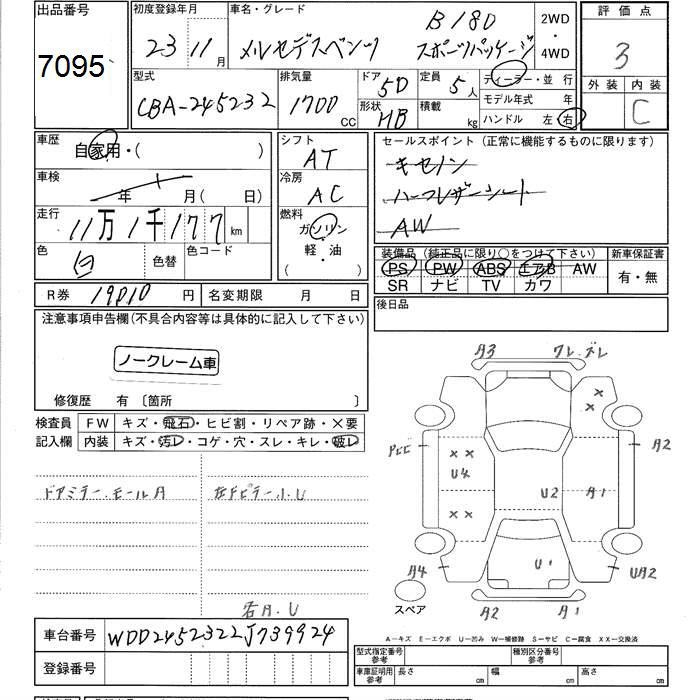 出品番号
7095
初度登録年月
23 11月
車名・グレード
メルセデスベンツ
B180
スポーツパッケージ
2WD
・
4WD
評価点
3
外装 内装
C
型式
CBA-245232
排気量
1700 CC
ドア 5D
形状 HB
定員 5人
積載 kg
ディーラー・並行
モデル年式 年
ハンドル 左 右
車歴
自家用・( )
車検
年 月( 日)
走行
11万1千177 km
色
白
色替
色コード
シフト
AT
冷房
AC
燃料
ガソリン
・
軽・油
( )
セールスポイント(正常に機能するものに限ります)
キセノン
ハーフレザーシート
AW
装備品(純正品に限り○をつけて下さい)
PS PW ABS エアB AW
SR ナビ TV カワ
新車保証書
有・無
R券 19010円
名変期限 月 日
後日品
注意事項申告欄(不具合内容等は具体的に記入して下さい)
ノークレーム車
修復歴 有〔箇所 〕
検査員
記入欄
FW キズ・飛石・ヒビ割・リペア跡・×要
内装 キズ・汚レ・コゲ・穴・スレ・キレ・破レ
ドアミラー.モールA
左Fピラー小U
右A.U
A3 ワレ.ズレ
×
×
A2
× ×
U4
U2
A1
× ×
A4
U1
UA2
スペア
A2
A1
A-キズ E-エクボ U-凹み W-補修跡 S-サビ C-腐食 XX-交換済
車台番号
WDD2452322J739924
登録番号
型式指定番号
参考
種別区分番号
参考
車庫証明用
参考
長さ cm
幅 cm
高さ cm